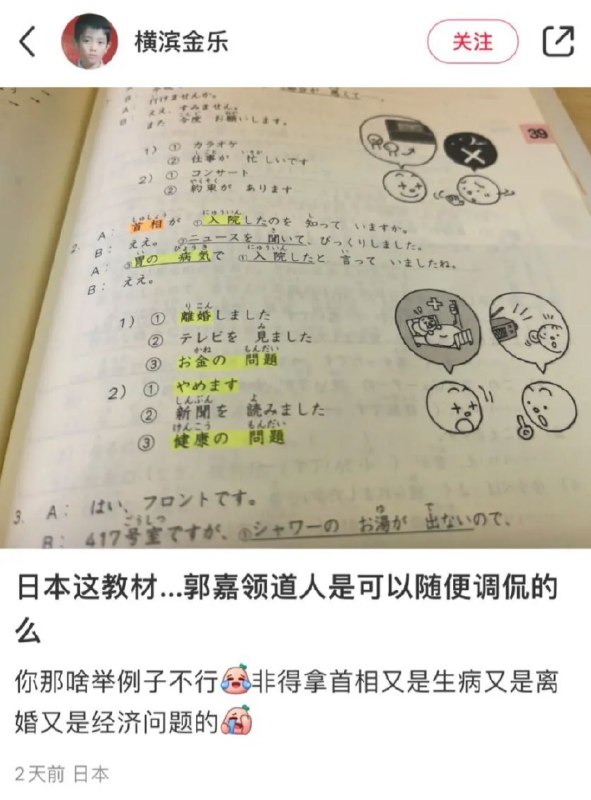 横滨金乐
关注
B: 行けませんか。
A: ええ、すみません。
B: また 今度 お願いします。
39
1) ① カラオケ
② 仕事が 忙しいです
2) ① コンサート
② 約束が あります
2. A: 首相が ①入院したのを 知って いますか。
B: ええ。②ニュースを 聞いて、びっくりしました。
A: ③胃の 病気で ①入院したと 言って いましたね。
B: ええ。
1) ① 離婚しました
② テレビを 見ました
③ お金の 問題
2) ① やめます
② 新聞を 読みました
③ 健康の 問題
3. A: はい、フロントです。
B: 417号室ですが、①シャワーの お湯が 出ないので、
日本这教材...郭嘉领道人是可以随便调侃的
么
你那啥举例子不行😂非得拿首相又是生病又是离
婚又是经济问题的
2天前 日本